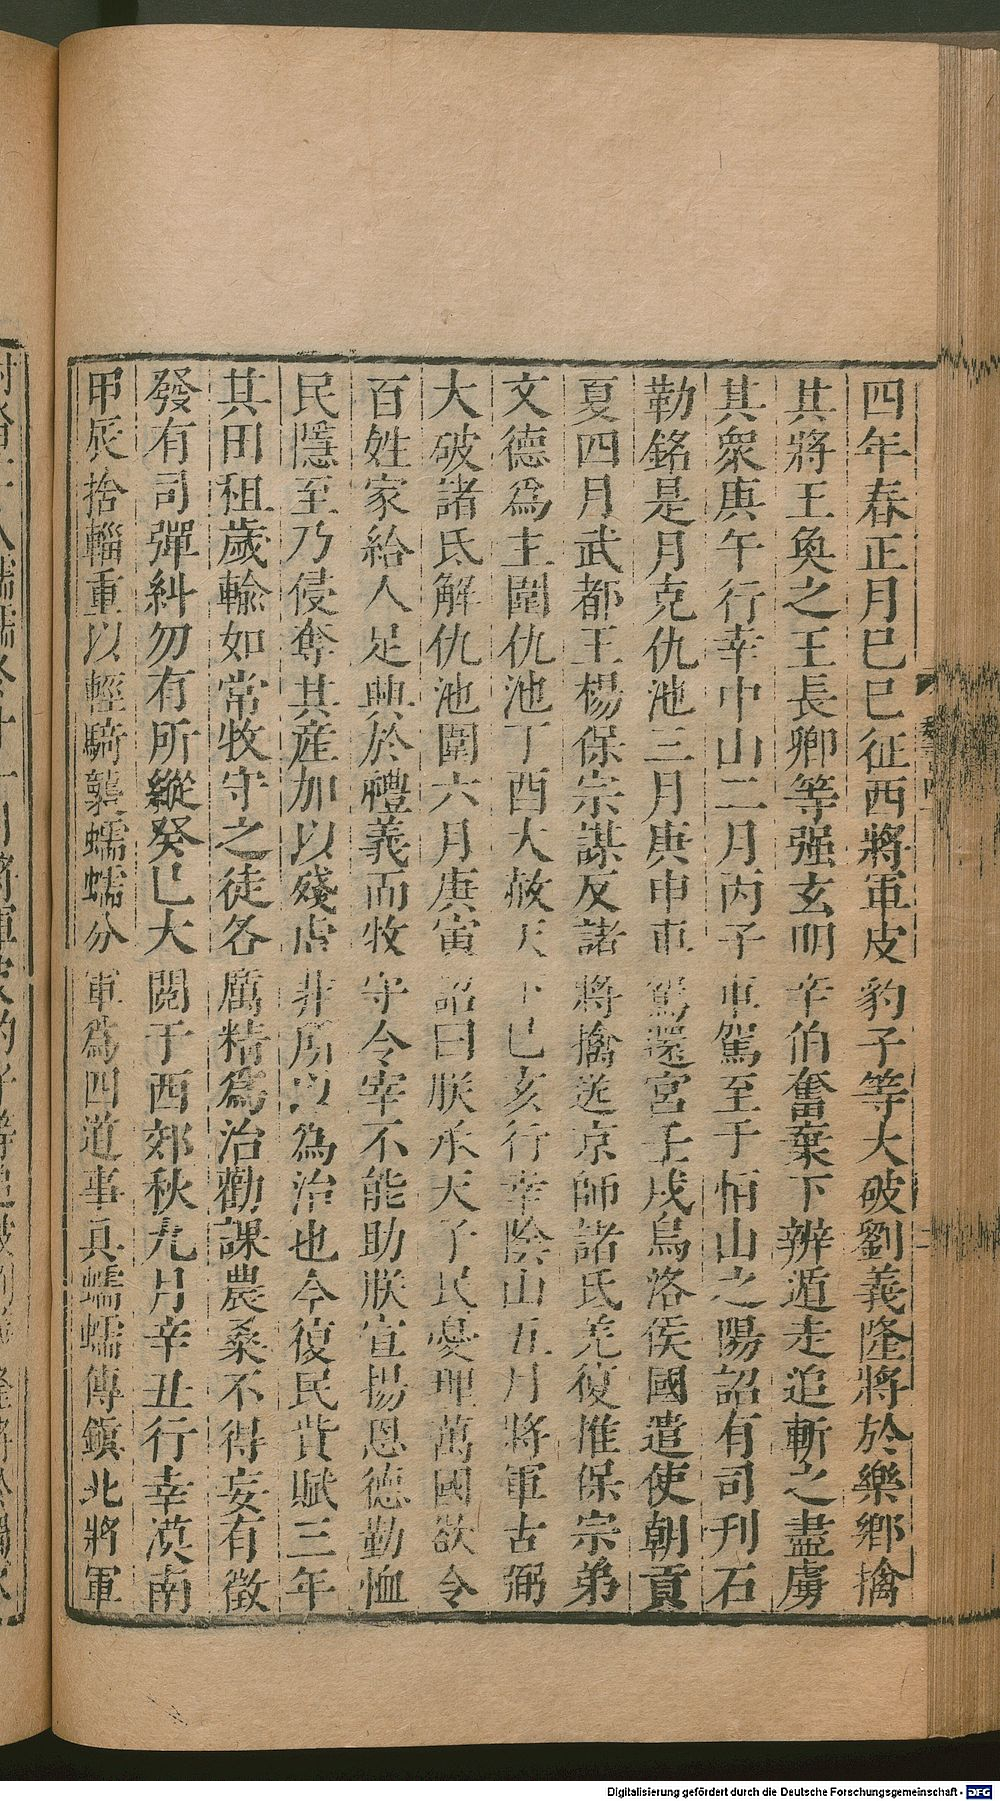 四年春正月巳巳征西將軍皮豹子等大破劉義隆將於樂鄉擒
其將王奐之王長卿等强玄明辛伯奮棄下辨遁走追斬之盡虜
其衆庚午行幸中山二月丙子車駕至于恒山之陽詔有司刋石
勒銘是月克仇池三月庚申車駕還宮壬戌烏洛侯國遣使朝貢
夏四月武都王楊保宗謀反諸將擒送京師諸氐羌復推保宗弟
文德爲主圍仇池丁酉大赦天下巳亥行幸陰山五月將軍古弼
大破諸氐解仇池圍六月庚寅詔曰朕承天子民憂理萬國欲令
百姓家給人足興於禮義而牧守令宰不能助朕宣揚恩德勤恤
民隱至乃侵奪其産加以殘虐非所以為治也今復民貲賦三年
其田租歲輸如常牧守之徒各厲精爲治勸課農桑不得妄有徵
發有司彈糾勿有所縱癸巳大閱于西郊秋九月辛丑行幸漠南
甲辰捨輜重以輕騎襲蠕蠕分軍爲四道事具蠕蠕傳鎭北將軍
Digitalisierung gefördert durch die Deutsche Forschungsgemeinschaft - DFG